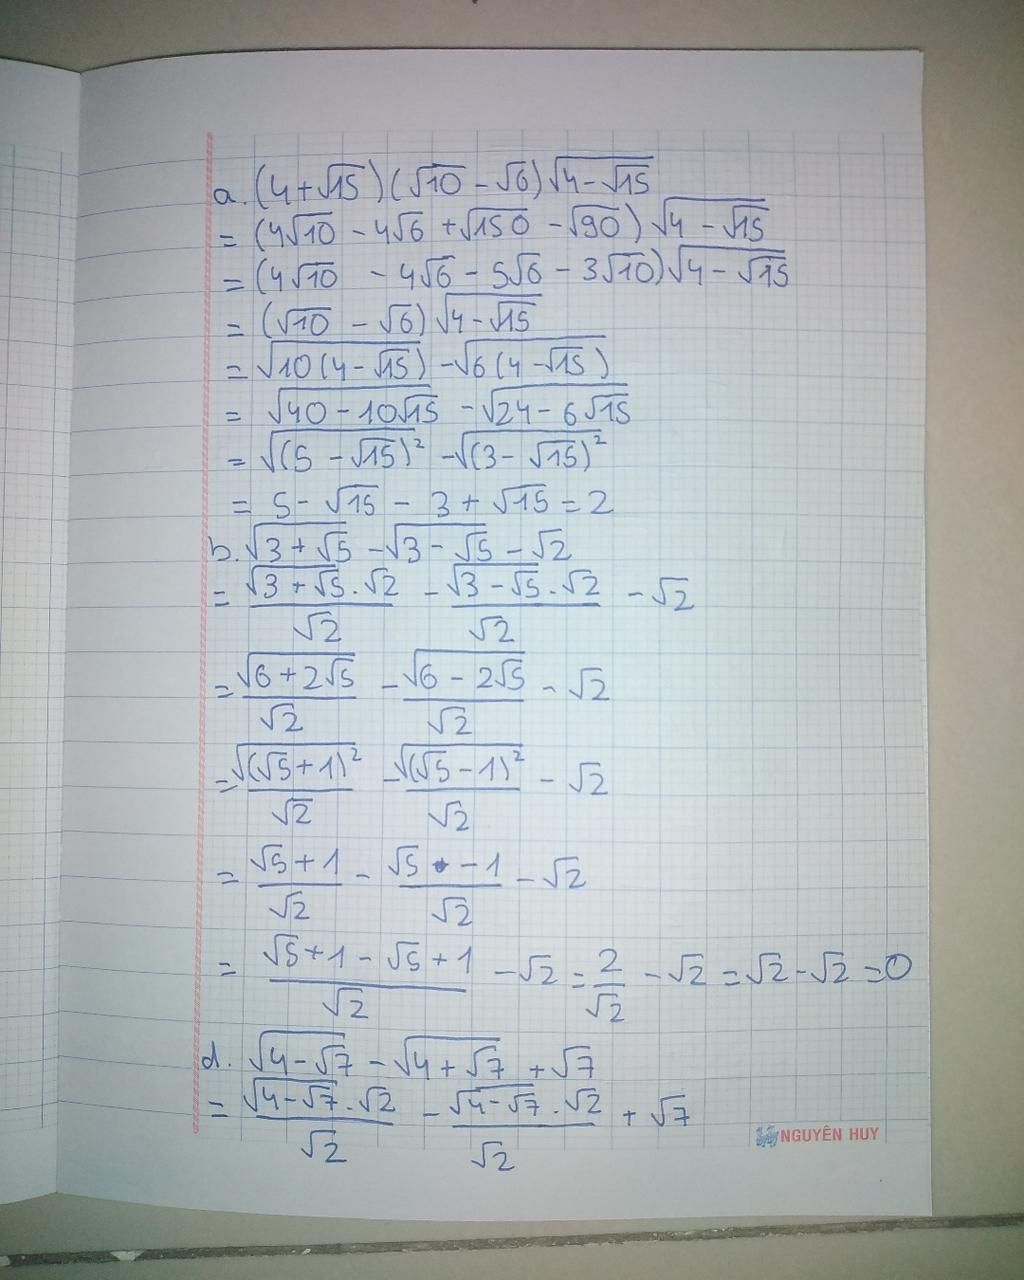 a. (4+√15)(√10 - √6)√(4-√15)
= (4√10 - 4√6 + √150 - √90)√(4 - √15)
= (4√10 - 4√6 - 5√6 - 3√10)√(4 - √15)
= (√10 - √6)√(4-√15)
= √(10(4-√15)) - √(6(4-√15))
= √(40-10√15) - √(24-6√15)
= √((5-√15)²) - √((3-√15)²)
= 5-√15 - 3 + √15 = 2
b. √(3+√5) - √(3-√5) - √2
= (√(3+√5).√2)/√2 - (√(3-√5).√2)/√2 - √2
= √(6+2√5)/√2 - √(6-2√5)/√2 - √2
= √((√5+1)²)/√2 - √((√5-1)²)/√2 - √2
= (√5+1)/√2 - (√5-1)/√2 - √2
= (√5+1-√5+1)/√2 - √2 = 2/√2 - √2 = √2-√2 = 0
d. √(4-√7) - √(4+√7) + √7
= (√(4-√7).√2)/√2 - (√(4-√7).√2)/√2 + √7
NGUYÊN HUY